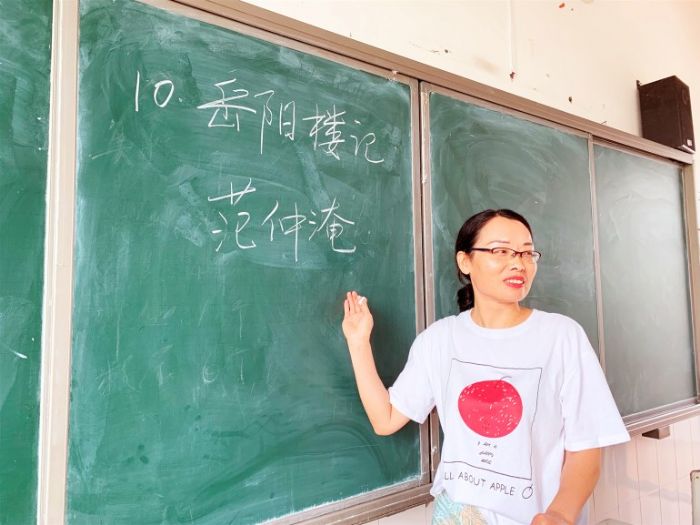 10. 岳阳楼记
范仲淹
LL ABOUT APPLE